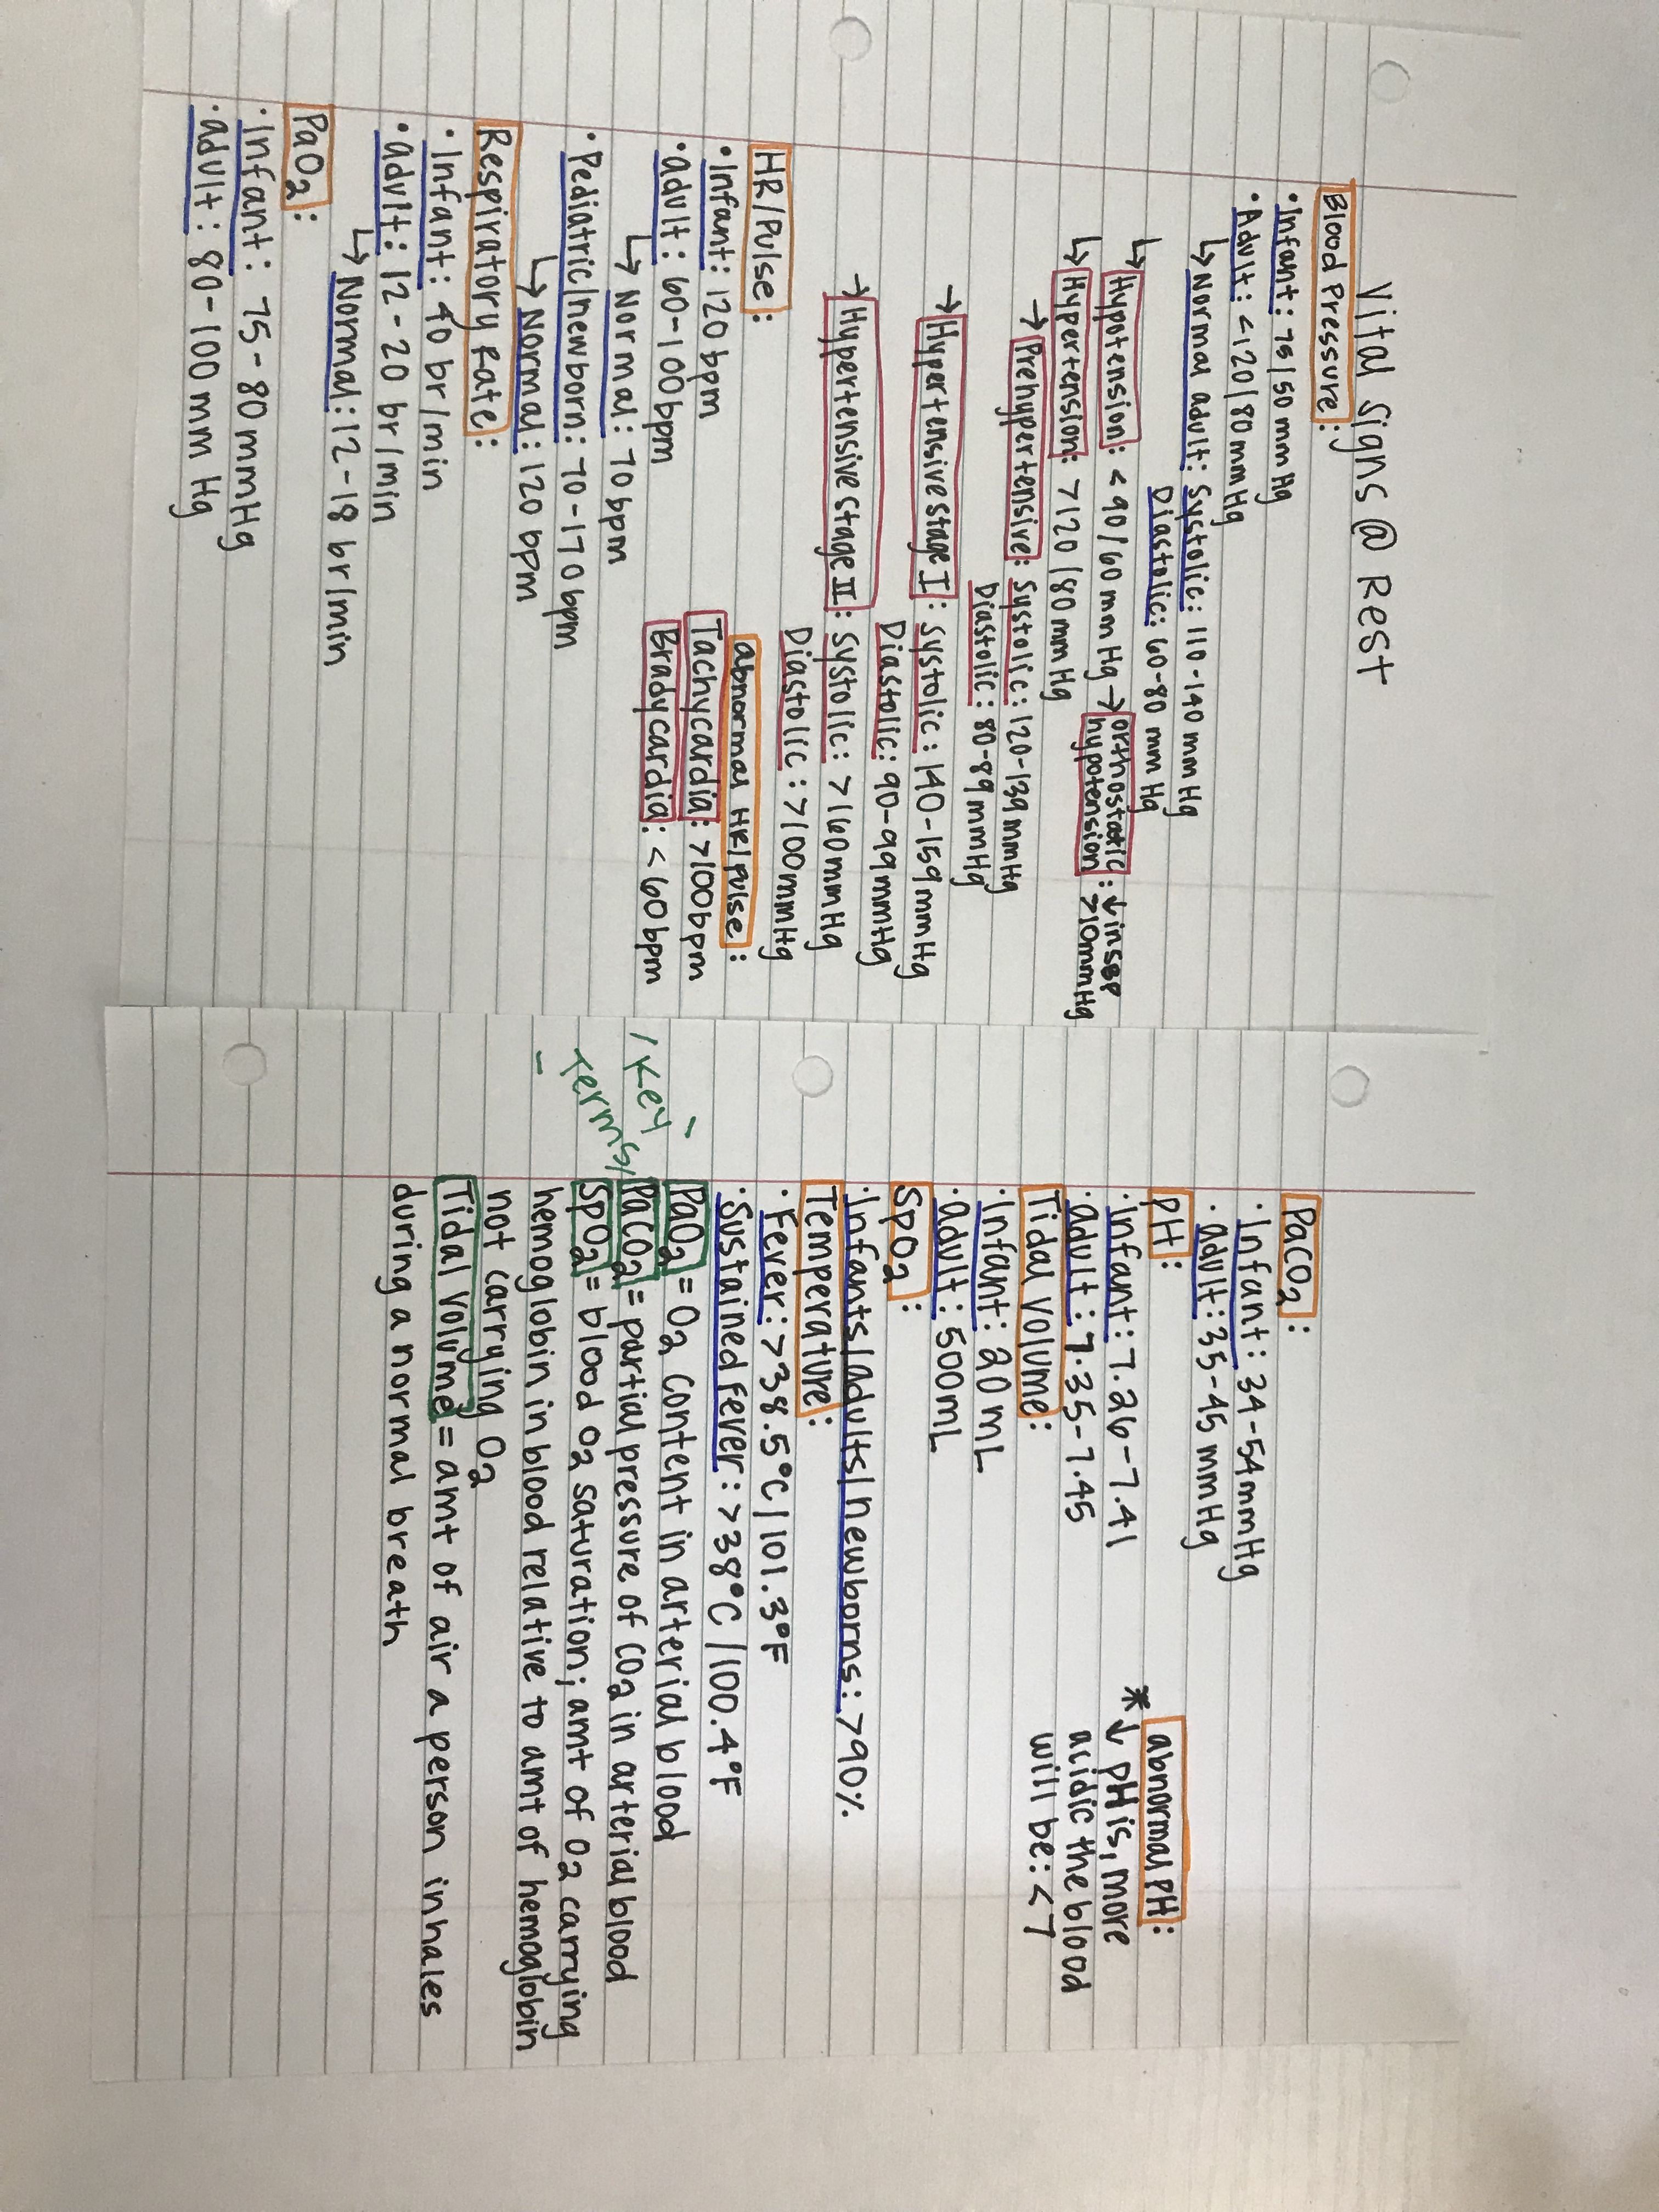 Vital Signs @ Rest
Blood Pressure:
• Infant: 75/50 mm Hg
• Adult: <120/80 mmHg
↳ Normal adult: Systolic: 110-140 mm Hg
Diastolic: 60-80 mm Hg
↳ Hypotension: <90/60 mm Hg → orthostatic hypotension: ↓ in SBP >10mmHg
↳ Hypertension: >120/80 mm Hg
→ Prehypertensive: Systolic: 120-139 mmHg
Diastolic: 80-89 mmHg
→ Hypertensive Stage I: Systolic: 140-159 mmHg
Diastolic: 90-99 mmHg
→ Hypertensive Stage II: Systolic: >160 mm Hg
Diastolic: >100mmHg
HR/Pulse:
• Infant: 120 bpm
• adult: 60-100bpm
↳ Normal: 70 bpm
• Pediatric/newborn: 70-170 bpm
↳ Normal: 120 bpm
abnormal HR/pulse:
Tachycardia: >100bpm
Bradycardia: <60 bpm
Respiratory Rate:
• Infant: 40 br/min
• adult: 12-20 br/min
↳ Normal: 12-18 br/min
PaO2:
• Infant: 75-80 mmHg
• adult: 80-100 mm Hg
PaCO2:
• Infant: 34-54 mmHg
• adult: 35-45 mmHg
pH:
• Infant: 7.26-7.41
• adult: 7.35-7.45
abnormal pH:
* ↓ pH is, more
acidic the blood
will be: <7
Tidal Volume:
• Infant: 20 mL
• adult: 500mL
SpO2:
• Infants/adults/newborns: >90%
Temperature:
• Fever: >38.5°C/101.3°F
• Sustained fever: >38°C/100.4°F
/Key
Terms/
PaO2 = O2 content in arterial blood
PaCO2 = partial pressure of CO2 in arterial blood
SpO2 = blood O2 saturation; amt of O2 carrying
hemoglobin in blood relative to amt of hemoglobin
not carrying O2
Tidal Volume = amt of air a person inhales
during a normal breath